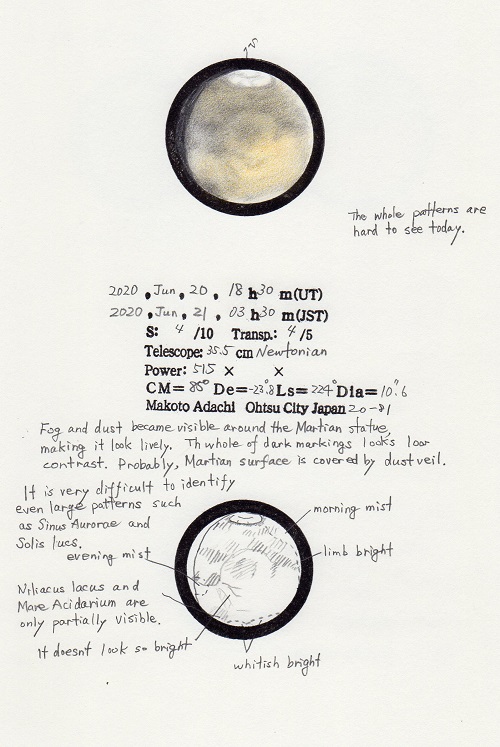 The whole patterns are
hard to see today.
2020, Jun, 20, 18 h 30 m(UT)
2020, Jun, 21, 03 h 30 m(JST)
S: 4 /10 Transp.: 4 /5
Telescope: 35.5 cm Newtonian
Power: 515 × ×
CM= 85° De= -23.8° Ls= 224° Dia= 10".6
Makoto Adachi Ohtsu City Japan 20-81
Fog and dust became visible around the Martian statue,
making it look lively. Th whole of dark markings looks loar
contrast. Probably, Martian surface is covered by dust veil.
It is very difficult to identify
even large patterns such
as Sinus Aurorae and
Solis lucs.
morning mist
evening mist
limb bright
Niliacus lacus and
Mare Acidarium are
only partially visible.
It doesnt look so bright
whitish bright